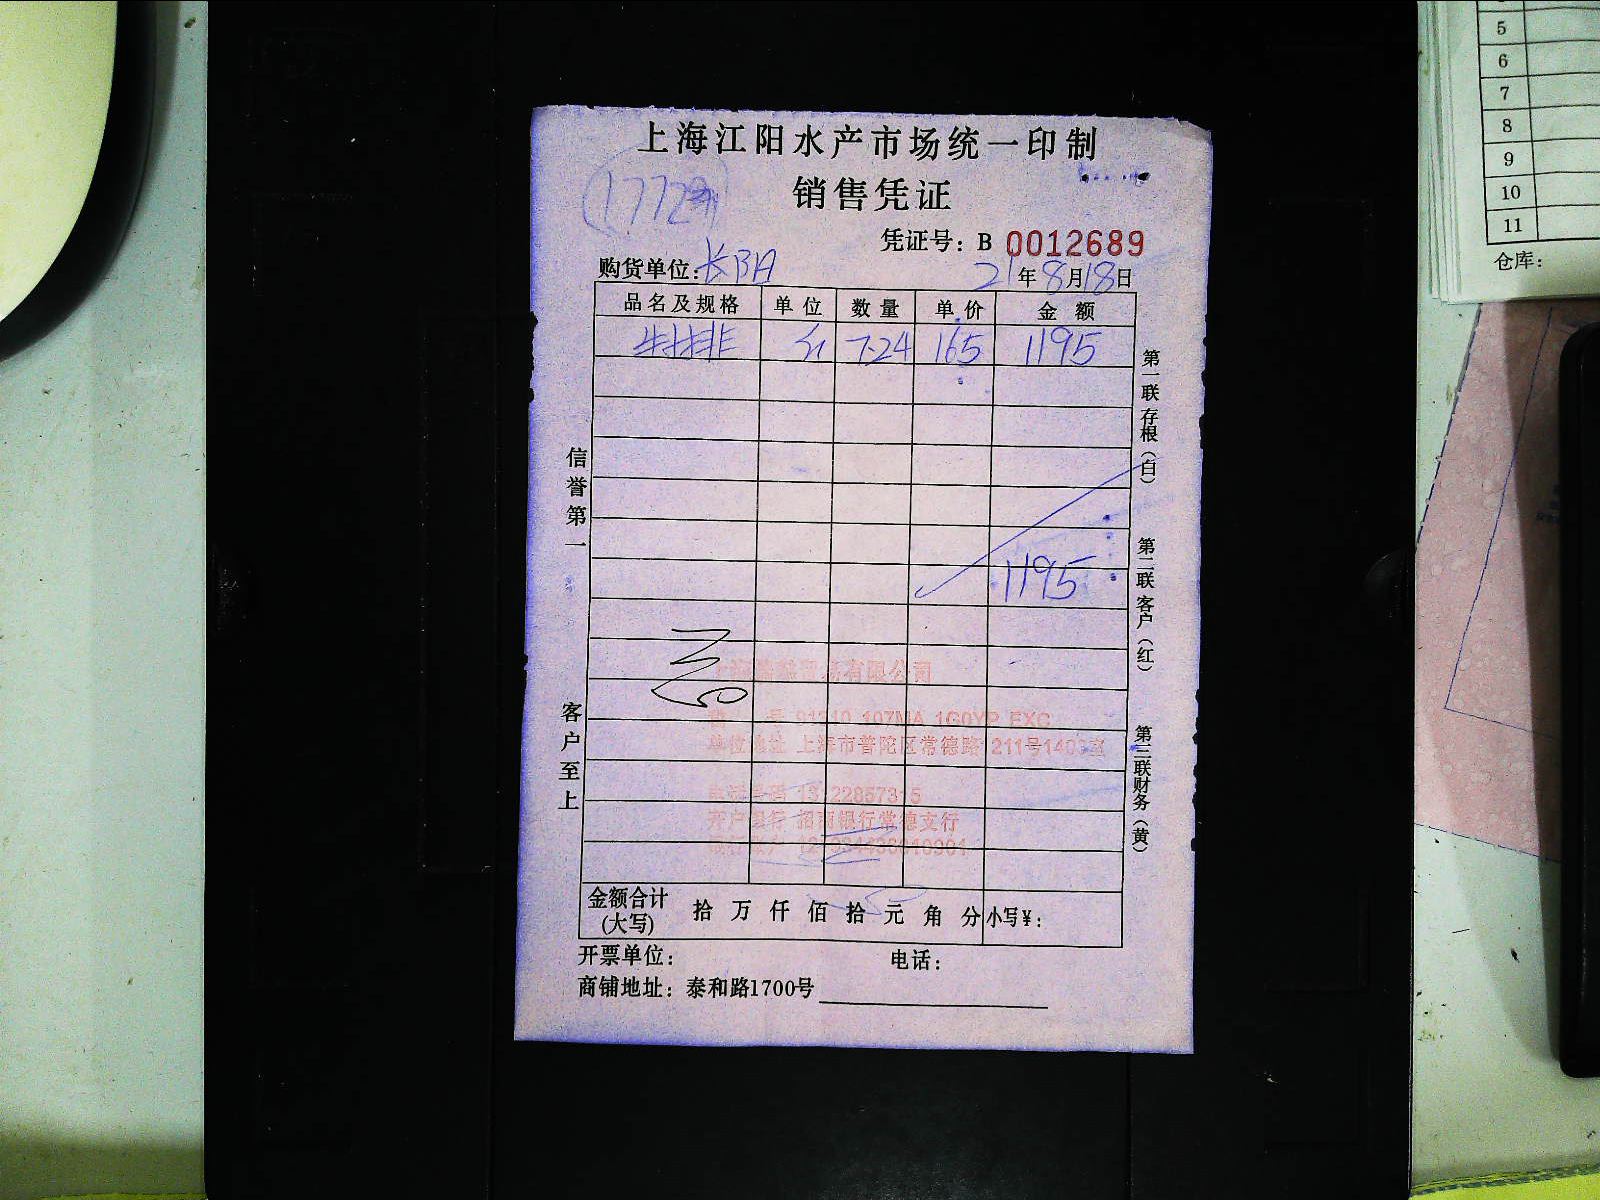 上海江阳水产市场统一印制
销售凭证
凭证号：B 0012689
购货单位：长BA 21年8月18日
品名及规格 单位 数量 单价 金额
7.24 165 1195
1195
贸易有限公司
号 91310 107MA 1G0YP EXC
单位地址 上海市普陀区常德路 211号140室
开户银行 招商银行常德支行
金额合计(大写) 拾 万 仟 佰 拾 元 角 分 小写¥：
开票单位： 电话：
商铺地址：泰和路1700号
信誉第一
客户至上
第一联 存根（白）
第二联 客户（红）
第三联 财务（黄）
5
6
7
8
9
10
11
仓库：